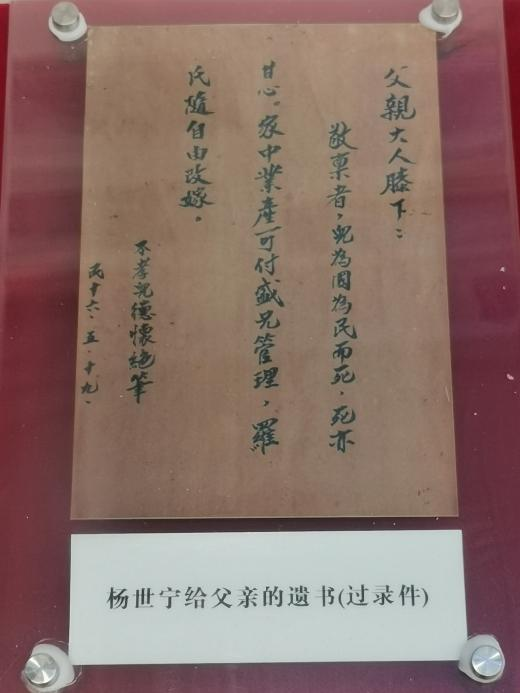 父親大人膝下：
敬禀者，兒為囯為民而死，死亦
甘心。家中業產可付盛兄管理，羅
氏隨自由改嫁。
不孝兒德懷絶筆
民十六·五·十九·
杨世宁给父亲的遗书(过录件)